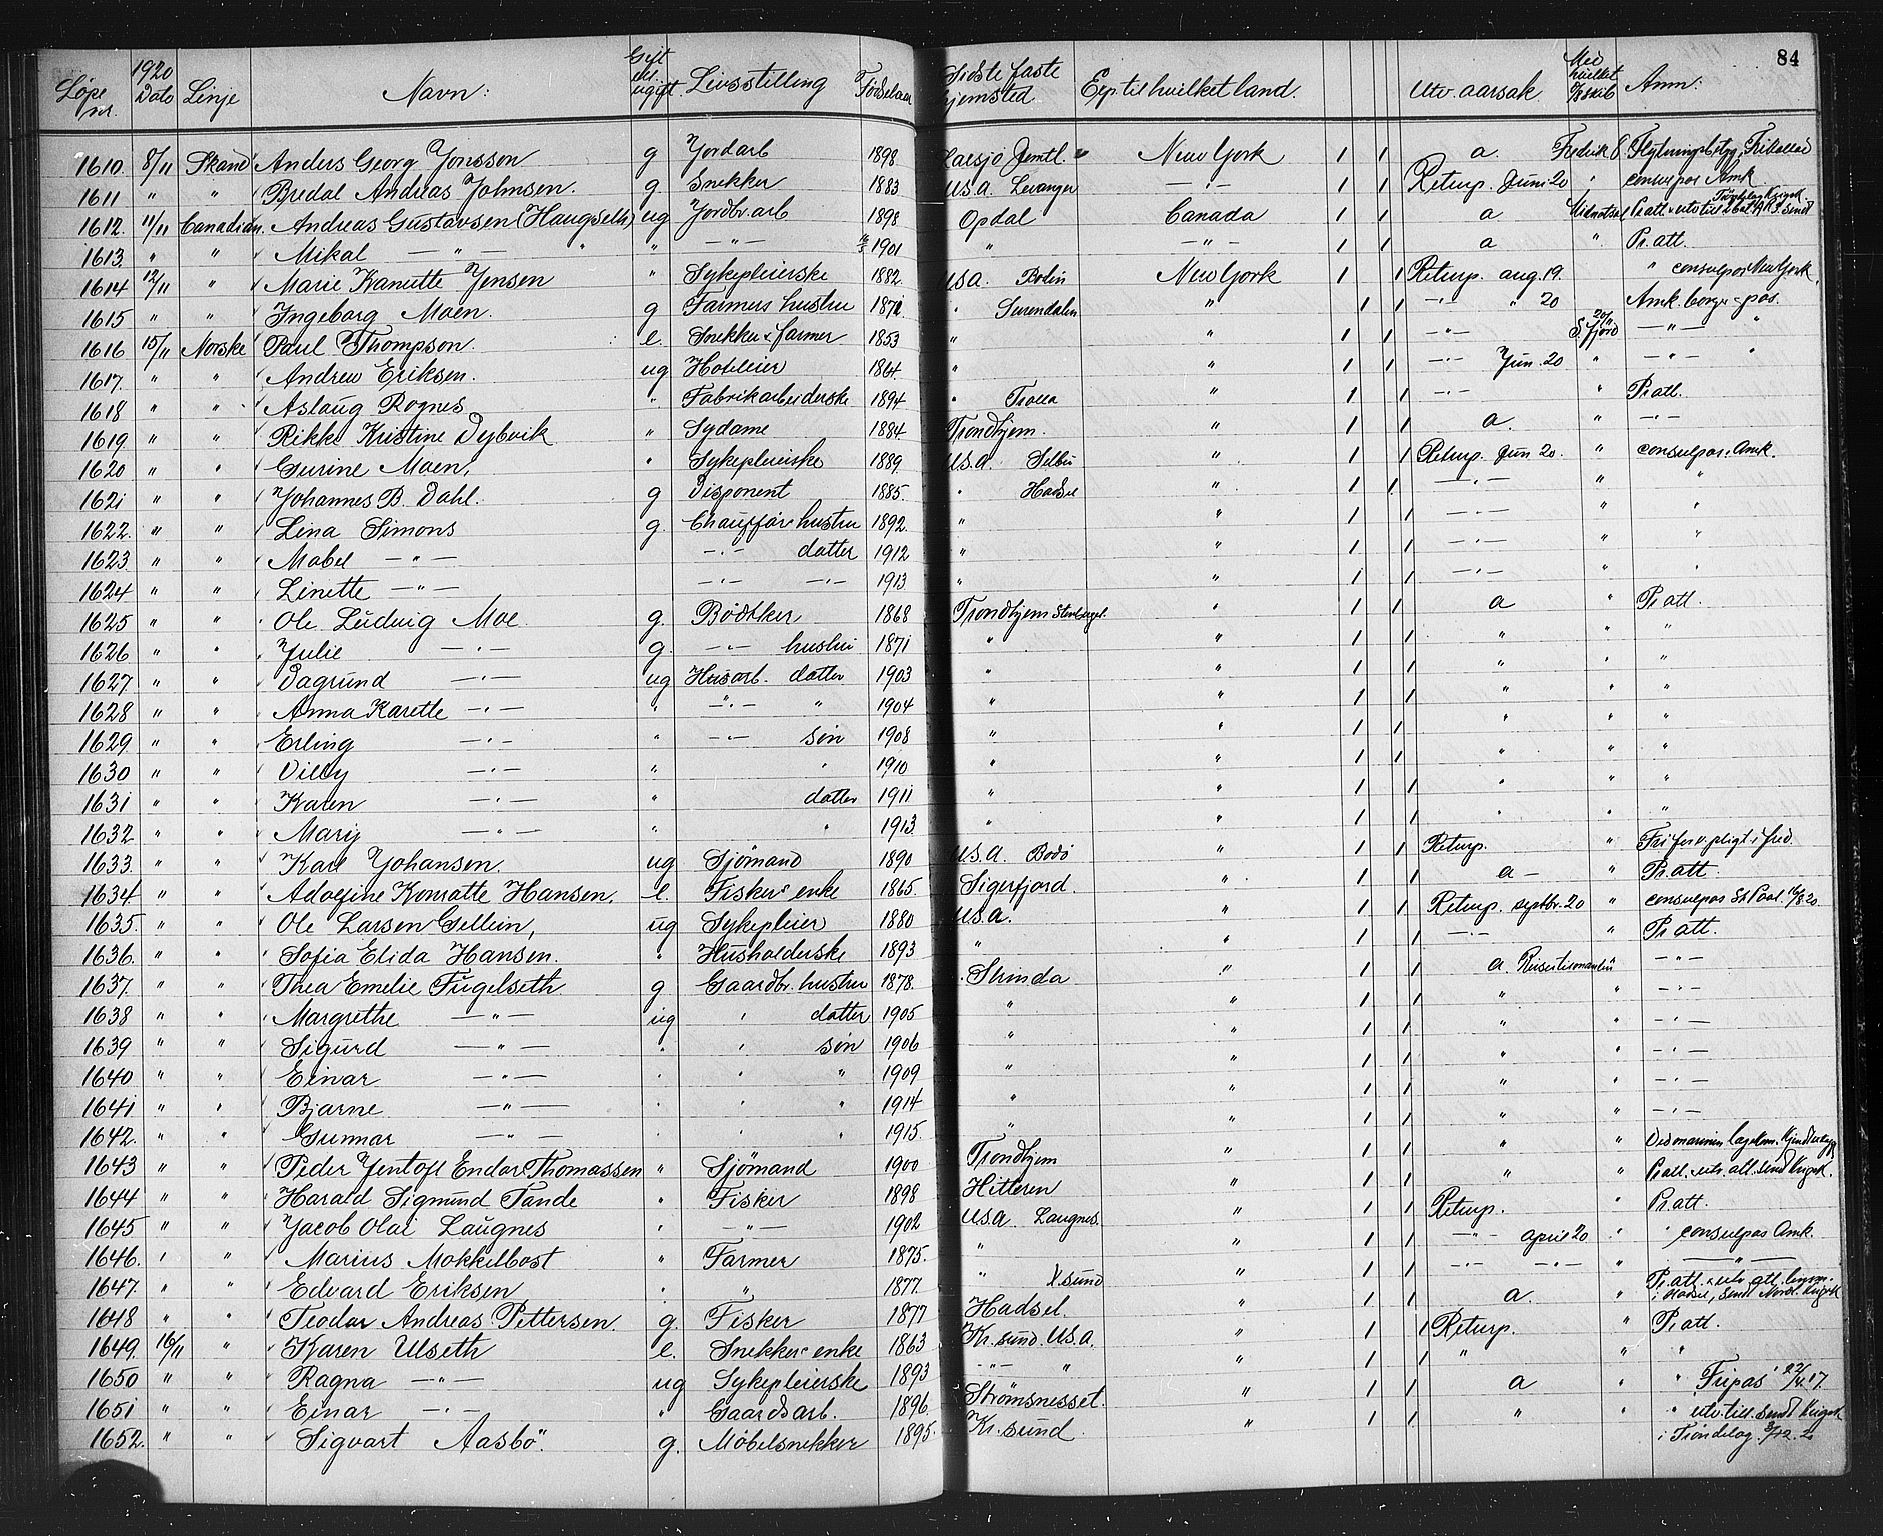 84
Løpe nr. 1920 Dato Linje Navn: Gift el. ugift. Livsstilling Fødselsaar Sidste faste hjemsted Exp. til hvilket land. Utv. aarsak Med hvilket skib Anm.
1610 8/11 Skand Anders Georg Jonsson g Jordarb 1898 Jemtl. New York 1 1 a. Fredrik 8
1611 " " Bredal Andreas Johnsen. g Snekker 1883 U.S.A. Levanger — " — 1 1 Returp. Juni 20 " consulpas Amk
1612. 11/11 Canadian. Andreas Gustavsen (Haugseth) ug Jordbr.arb 1898 Opdal Canada 1 1 a
1613. " " Mikal — " — " " — " — 1901 " — " — 1 1 a " Pr. att.
1614 12/11 " Marie Kanutte Jensen " Sykepleierske 1882. U.S.A. Bodin New York 1 1 Returp. aug. 19. " consulpas New York
1615 " " Ingeborg Moen. g Farmers hustru 1871 " Surendalen " 1 1 — " — " 20 Amk. borger pas.
1616 15/11 Norske Paul Thompson e. Snekker & farmer 1853 " " 1 1 — " — S. fjord 20/11 — " — "
1617. " " Andrew Eriksen. ug Hoteleier 1864. " " 1 1 — " — Jun. 20 " — " — "
1618 " " Aslaug Rognes " Fabrikarbeiderske 1894 " Trolla " 1 1 — " — " Pr. att.
1619 " " Rikke Kristine Dybvik " Sydame 1884. Trondhjem. " 1 1 a. " — " —
1620 " " Gurine Moen, " Sykepleierske 1889. U.S.A. Selbu " 1 1 Returp. Jun. 20. " consulpas. Amk.
1621 " " Johannes B. Dahl. g Disponent 1885. " Hadsel " 1 1 — " — " "
1622. " " Lina Simons g. Chauffør hustru 1892. " " 1 1 — " — " "
1623 " " Mabel — " — — " — datter 1912 " " 1 1 — " — " "
1624 " " Linette — " — — " — — " — 1913 " " 1 1 — " — " "
1625 " " Ole Ludvig Moe g. Bødtker 1868 Trondhjem " 1 1 a " Pr. att.
1626 " " Julie — " — g. — " — hustru 1871 " " 1 1 " " "
1627 " " Dagrund — " — ug Husarb. datter 1903 " " 1 1 " " "
1628 " " Anna Karette — " — " — " — " 1904 " " 1 1 " " "
1629 " " Erling — " — " — " — søn 1908 " " 1 1 " " "
1630 " " Villy — " — " " 1910 " " 1 1 " " "
1631 " " Karen — " — " datter 1911 " " 1 1 " " "
1632 " " Mary — " — " " 1913. " " 1 1 " " "
1633. " " Karl Johansen. ug Sjömand 1890 U.S.A. Bodø " 1 1 Returp. " Fri for v.pligt i fred.
1634 " " Adolfine Konratte Hansen. e. Fiskers enke 1865. Sigerfjord. " 1 1 a — " Pr. att.
1635. " " Ole Larsen Gellein, ug Sykepleier 1880 U.S.A. " 1 1 Returp. septbr. 20 " consulpas St. Paul. 16/8 20.
1636. " " Sofia Elida Hansen. " Husholderske 1893 " " 1 1 — " — " Pr. att.
1637. " " Thea Emelie Fugelseth g Gaardbr. hustru 1878. Strinda " 1 1 a. Reiser til manden — " —
1638 " " Margrethe — " — ug " datter 1905 " " 1 1 " " — " —
1639 " " Sigurd — " — " " søn 1906 " " 1 1 " " — " —
1640 " " Einar — " — " " " 1909 " " 1 1 " " — " —
1641 " " Bjarne — " — " " " 1914 " " 1 1 " " — " —
1642. " " Gunnar — " — " " " 1915. " " 1 1 " " — " —
1643 " " Peder Jentoft Endor Thomassen " Sjömand 1900 Trondhjem " 1 1 " "
1644 " " Harald Sigmund Tande " Fisker 1898 Hitteren " 1 1 " " Pr. att. utv. att. send Krigsk.
1645 " " Jacob Olai Laugnes " — " — 1902 U.S.A. Laugnes. " 1 1 Returp. " Pr. att.
1646. " " Marius Mokkelbost " Farmer 1875. " " 1 1 — " — april 20 " " consulpas Amk.
1647. " " Edvard Eriksen " " 1877. " X sund " 1 1 — " — — " — " — " —
1648 " " Teodor Andreas Pettersen. g. Fisker 1877 Hadsel. " 1 1 a. "
1649. 16/11 " Karen Ulseth e. Snekkers enke 1863 Kr. sund. U.S.A. " 1 1 Returp. " Pr. att.
1650 " " Ragna — " — ug Sykepleierske 1893 — " — " " 1 1 " " "
1651 " " Einar — " — " Gaardsarb. 1896 Strømsnesset. " 1 1 a " " Fripas 22/4 17.
1652. " " Sigvart Aasbö. g. Möbelsnekker 1895. Kr. sund. " 1 1 " " " utv. till. send Krigsk i Trøndelag.